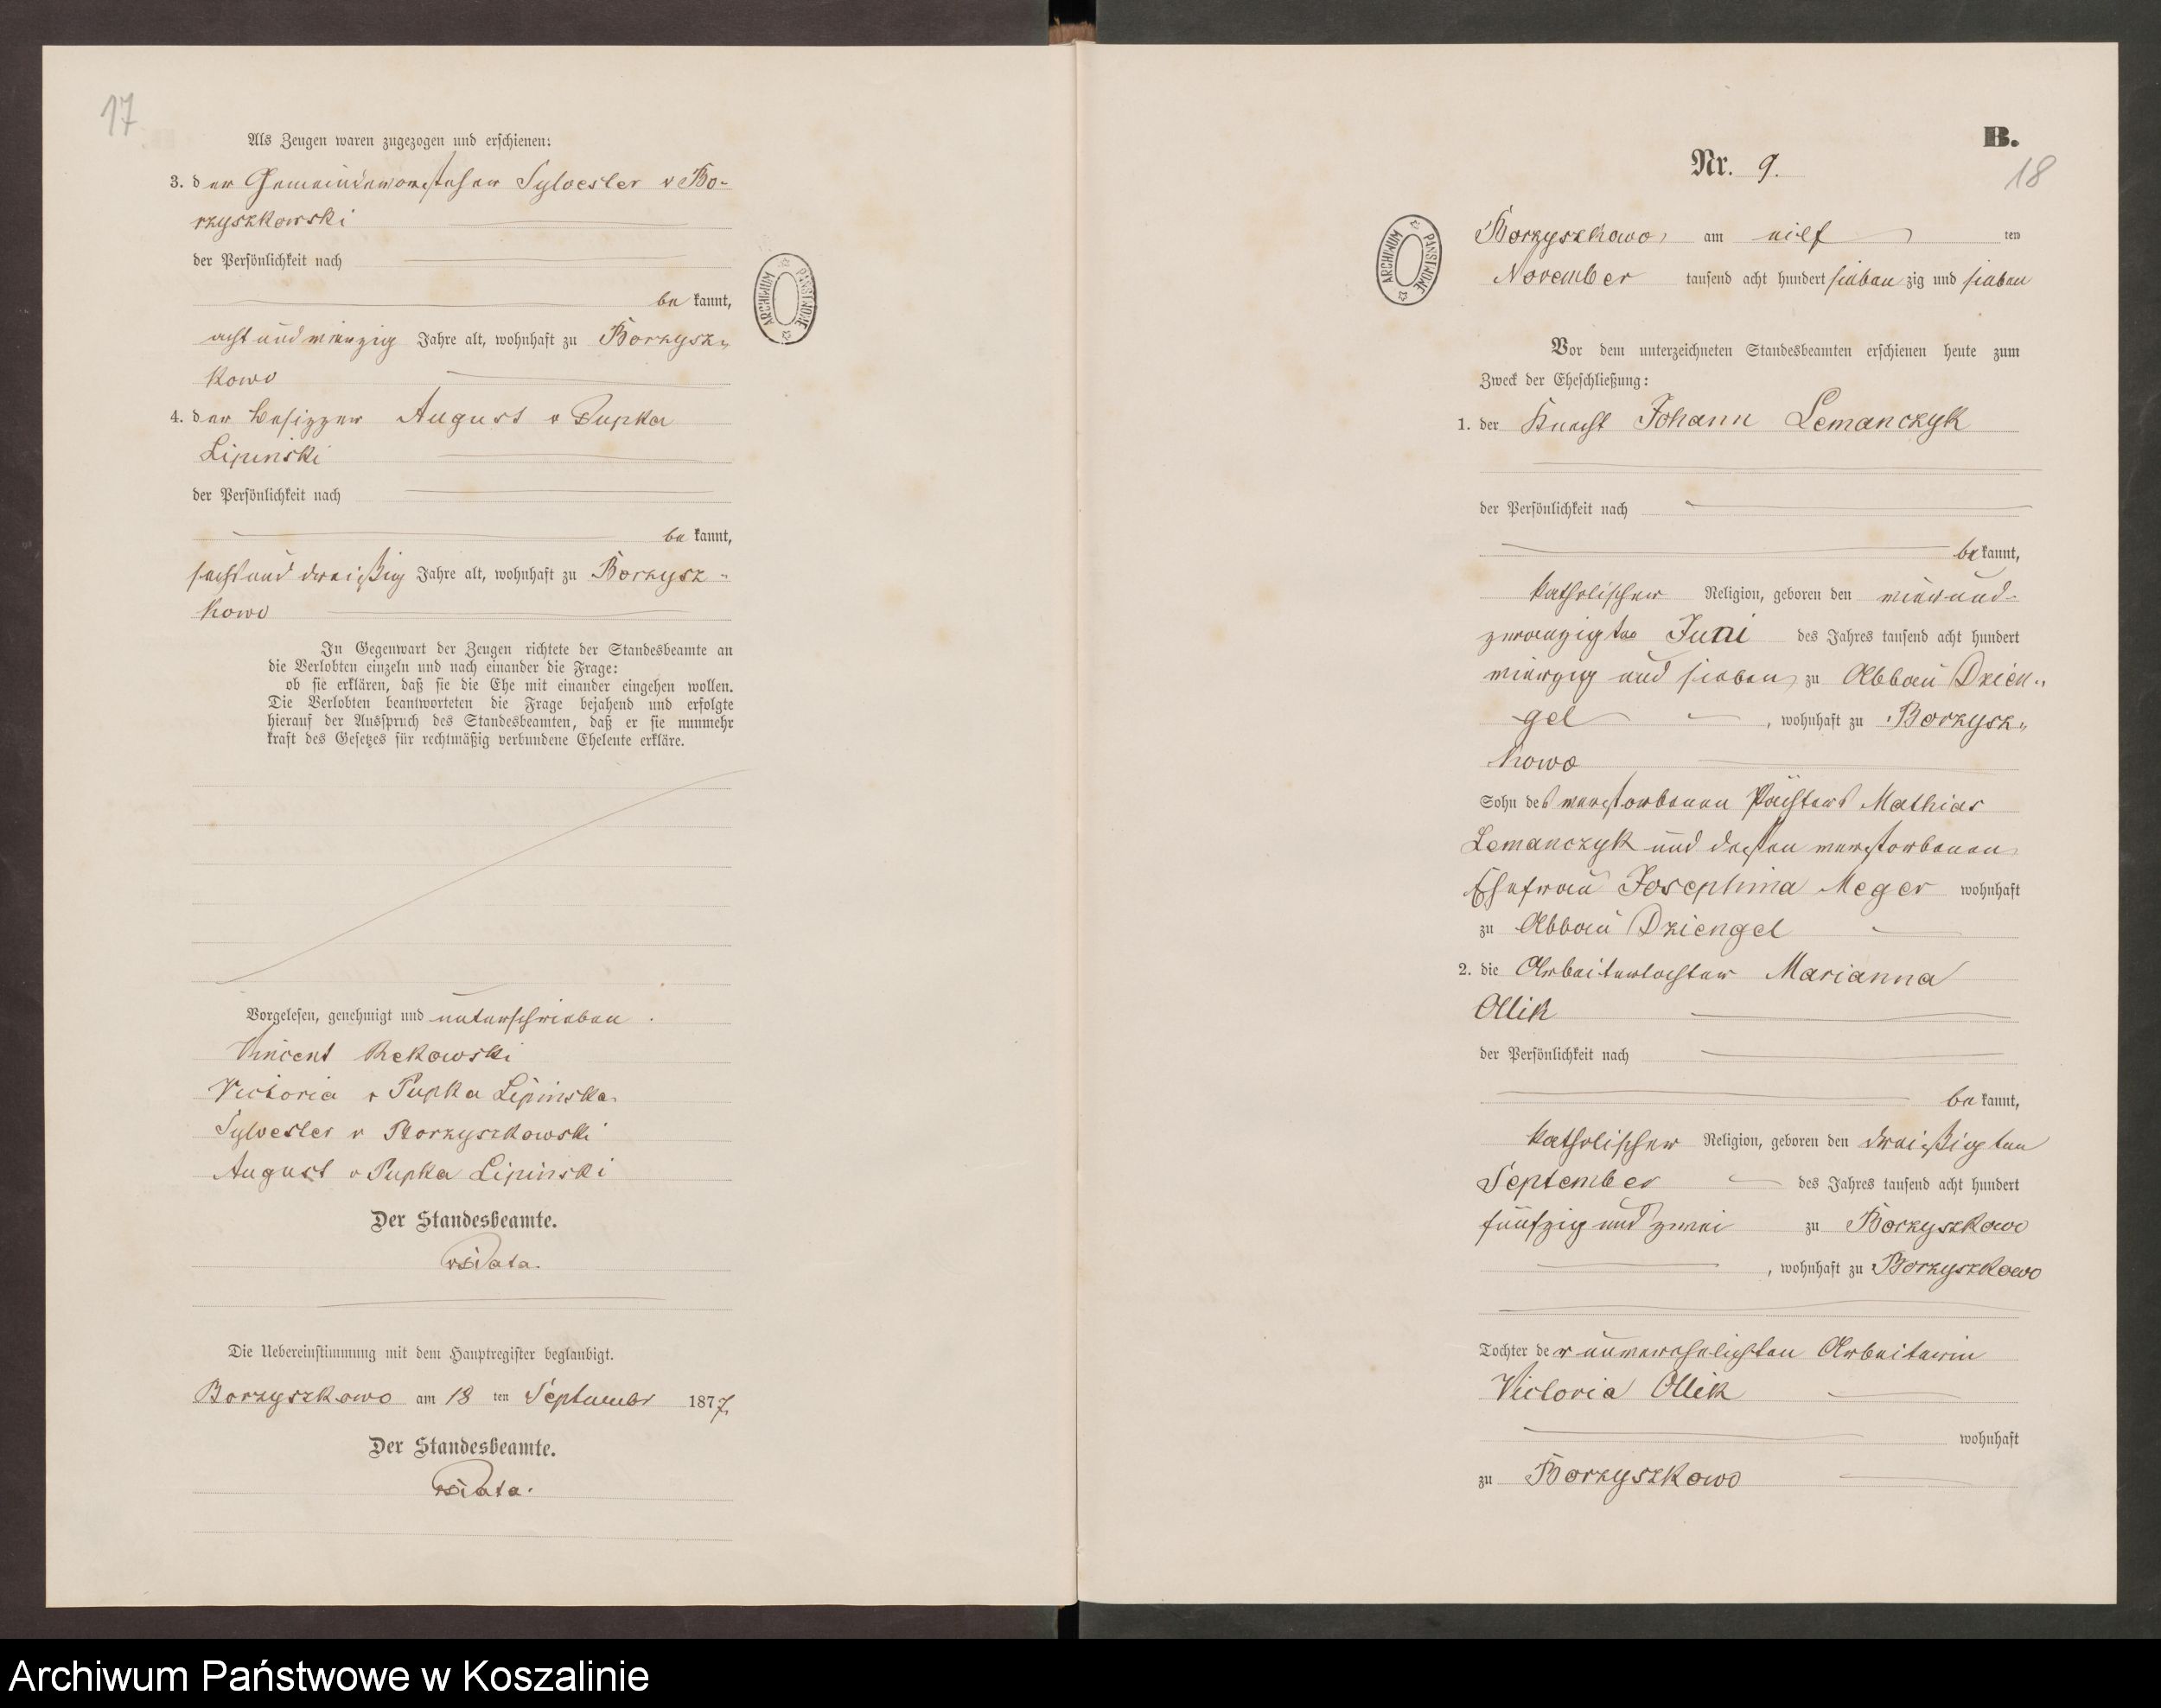 17
Als Zeugen waren zugezogen und erschienen:
3. der Gemeindevorsteher Sylvester v Bo-
rzyszkowski
der Persönlichkeit nach
be kannt,
acht und vierzig Jahre alt, wohnhaft zu Borzysz-
kowo
4. der Besitzer August v Pupka
Lipinski
der Persönlichkeit nach
be kannt,
sechs und dreißig Jahre alt, wohnhaft zu Borzysz-
kowo
In Gegenwart der Zeugen richtete der Standesbeamte an
die Verlobten einzeln und nach einander die Frage:
ob sie erklären, daß sie die Ehe mit einander eingehen wollen.
Die Verlobten beantworteten die Frage bejahend und erfolgte
hierauf der Ausspruch des Standesbeamten, daß er sie nunmehr
kraft des Gesetzes für rechtmäßig verbundene Eheleute erkläre.
Vorgelesen, genehmigt und unterschrieben.
Vincent Rekowski
Victoria v Pupka Lipinska
Sylvester v Borzyszkowski
August v Pupka Lipinski
Der Standesbeamte.
Die Uebereinstimmung mit dem Hauptregister beglaubigt.
Borzyszkowo am 18 ten September 1877.
Der Standesbeamte.
ARCHIWUM PAŃSTWOWE
B.
Nr. 9.
18
ARCHIWUM PAŃSTWOWE
Borzyszkowo, am eilf ten
November tausend acht hundert sieben zig und sieben
Vor dem unterzeichneten Standesbeamten erschienen heute zum
Zweck der Eheschließung:
1. der Knecht Johann Lemanczyk
der Persönlichkeit nach
be kannt,
katholischer Religion, geboren den vierund-
zwanzigten Juni des Jahres tausend acht hundert
vierzig und sieben, zu Abbau Dzien-
gel, wohnhaft zu Borzysz-
kowo
Sohn des verstorbenen Pächters Mathias
Lemanczyk und dessen verstorbenen
Ehefrau Josephina Meger wohnhaft
zu Abbau Dziengel
2. die Arbeitertochter Marianna
Ollik
der Persönlichkeit nach
be kannt,
katholischer Religion, geboren den dreißigten
September des Jahres tausend acht hundert
fünfzig und zwei zu Borzyszkowo
, wohnhaft zu Borzyszkowo
Tochter der unverehelichten Arbeiterin
Victoria Ollik
wohnhaft
zu Borzyszkowo
Archiwum Państwowe w Koszalinie